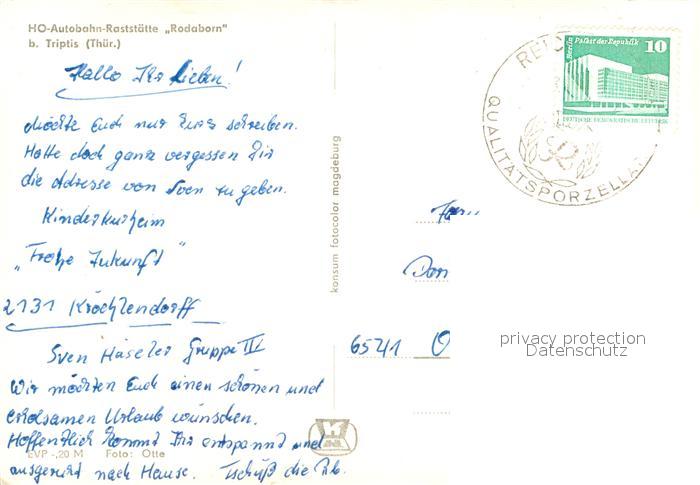 HO-Autobahn-Raststätte „Rodaborn"
b. Triptis (Thür.)
Hallo Ihr Lieben!
Möchte Euch nur kurz schreiben.
Hatte doch ganz vergessen Dir
die Adresse von Sven zu geben.
Kinderkurheim
„Frohe Zukunft"
2131 Kröchlendorff
Sven Häseler Gruppe III
Wir möchten Euch einen schönen und
erholsamen Urlaub wünschen.
Hoffentlich kommt Ihr entspannt und
ausgeruht nach Hause. Tschüß die
EVP -,20 M Foto: Otte
konsum fotocolor magdeburg
Berlin Palast der Republik
10
DEUTSCHE DEMOKRATISCHE REPUBLIK
REIC
QUALITÄTSPORZELLA
Fam
6541 O
privacy protection
Datenschutz